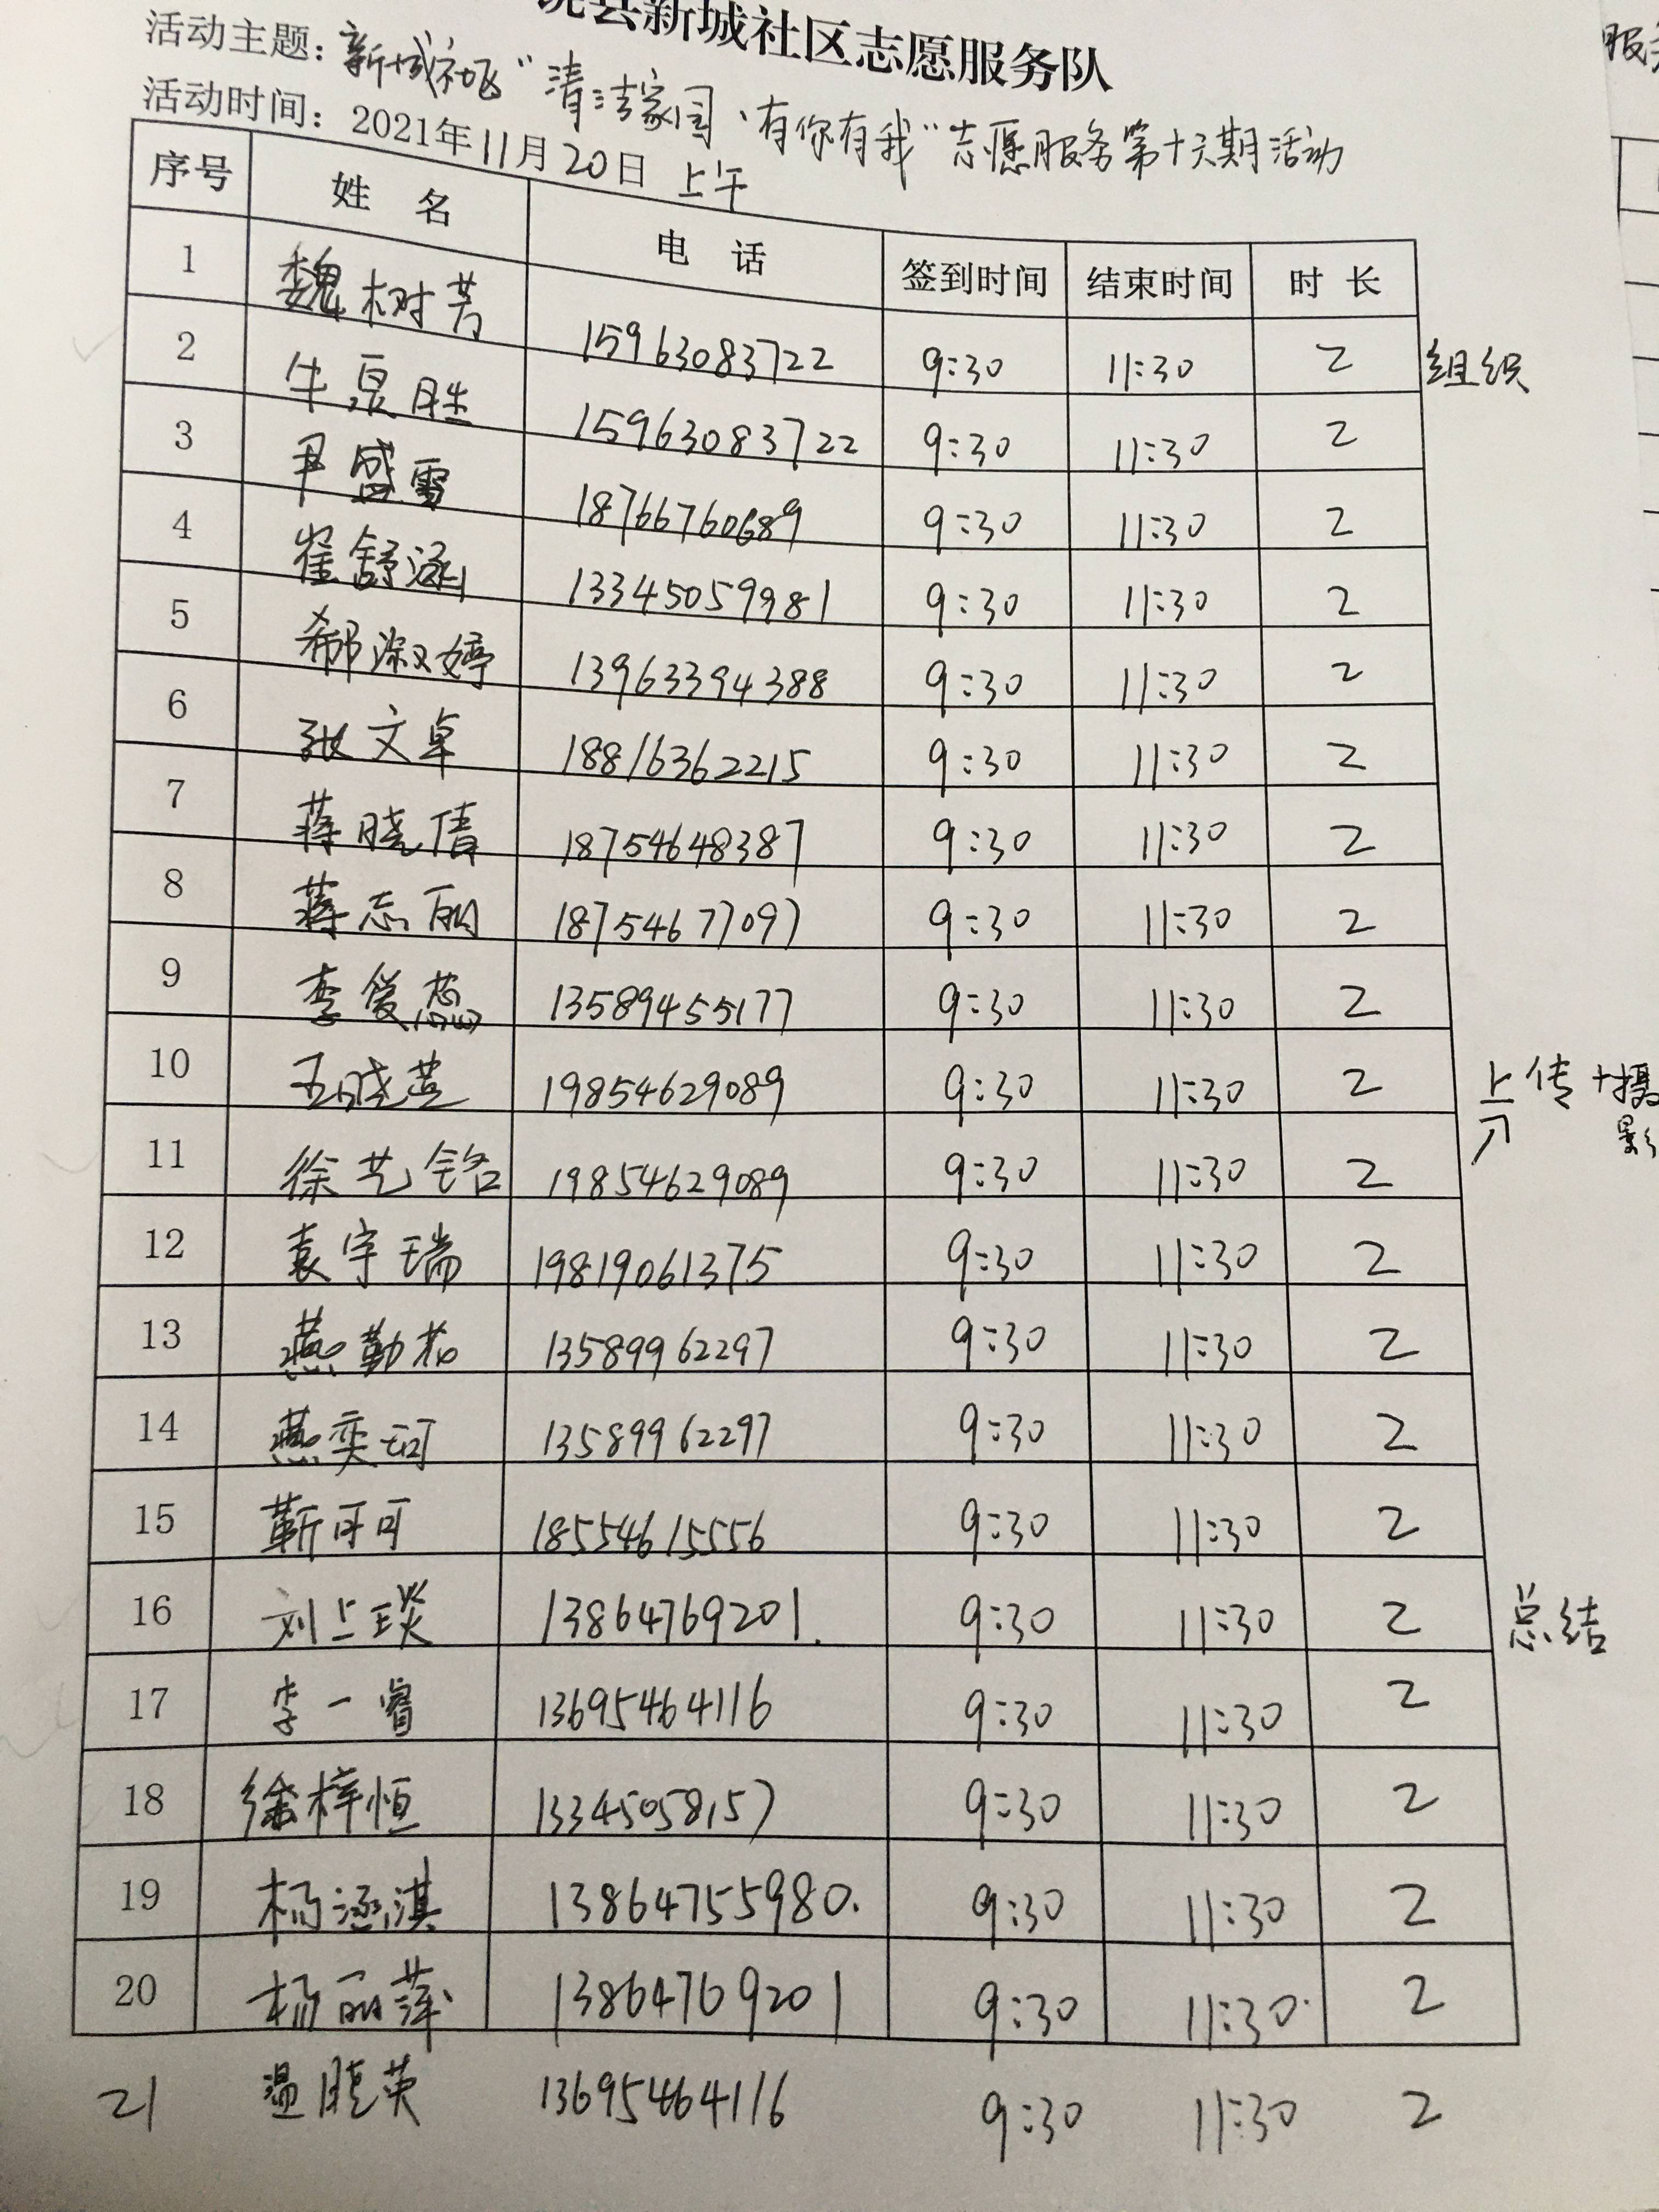 县新城社区志愿服务队
活动主题：新城社区“清洁家园、有你有我”志愿服务第十六期活动
活动时间：2021年11月20日 上午
序号 姓名 电话 签到时间 结束时间 时长
1 魏树芳 15963083722 9:30 11:30 2 组织
2 牛泉胜 15963083722 9:30 11:30 2
3 尹盛雪 18766760689 9:30 11:30 2
4 崔舒涵 13345059981 9:30 11:30 2
5 郗淑婷 13963394388 9:30 11:30 2
6 张文卓 18816362215 9:30 11:30 2
7 蒋晓倩 18754648387 9:30 11:30 2
8 蒋志丽 18754677097 9:30 11:30 2
9 李爱蕊 13589455177 9:30 11:30 2
10 王晓燕 19854629089 9:30 11:30 2 上传+摄影
11 徐艺铭 19854629089 9:30 11:30 2
12 袁宇瑞 19819061375 9:30 11:30 2
13 燕勤 13589962297 9:30 11:30 2
14 燕奕珂 13589962297 9:30 11:30 2
15 靳可可 18554615556 9:30 11:30 2
16 刘上琰 13864769201. 9:30 11:30 2 总结
17 李一睿 13695464116 9:30 11:30 2
18 徐梓恒 13345058157 9:30 11:30 2
19 杨涵淇 13864755980. 9:30 11:30 2
20 杨丽萍 13864769201 9:30 11:30 2
21 温晓英 13695464116 9:30 11:30 2
服务